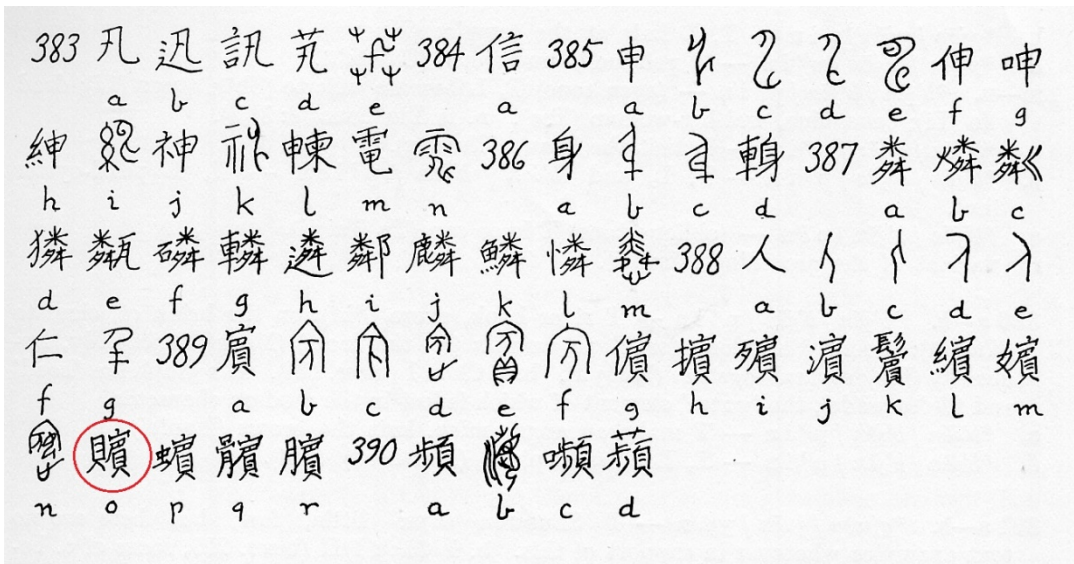 383 卂 迅 訊 384 信 385 申 伸 呻
a b c d e a a b c d e f g
紳 神 朄 電 386 身 387 粦 燐 粼
h i j k l m n a b c d a b c
獜 甐 磷 轔 遴 鄰 麟 鱗 憐 388 人
d e f g h i j k l m a b c d e
仁 389 賓 儐 擯 殯 濱 鬢 繽 嬪
f g a b c d e f g h i j k l m
蠙 髕 臏 390 頻 嚬 蘋
n o p q r a b c d